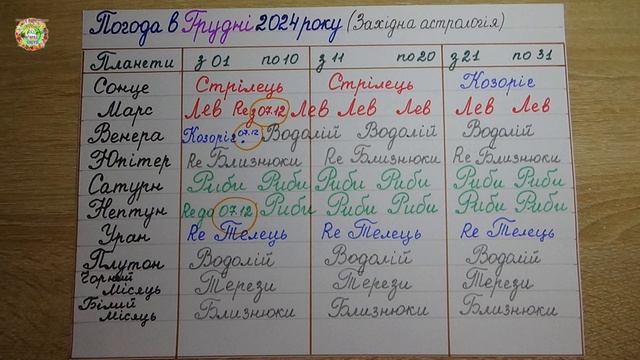 Погода в Грудні 2024 року (Західна астрологія)
Планети з 01 по 10 з 11 по 20 з 21 по 31
Сонце Стрілець Стрілець Козоріг
Марс Лев Re з 07.12 Лев Лев Лев Лев Лев
Венера Козоріг 07.12 Водолій Водолій Водолій
Юпітер Re Близнюки Re Близнюки Re Близнюки
Сатурн Риби Риби Риби Риби Риби Риби
Нептун Re до 07.12 Риби Риби Риби Риби Риби
Уран Re Телець Re Телець Re Телець
Плутон Водолій Водолій Водолій
Чорний Місяць Терези Терези Терези
Білий Місяць Близнюки Близнюки Близнюки